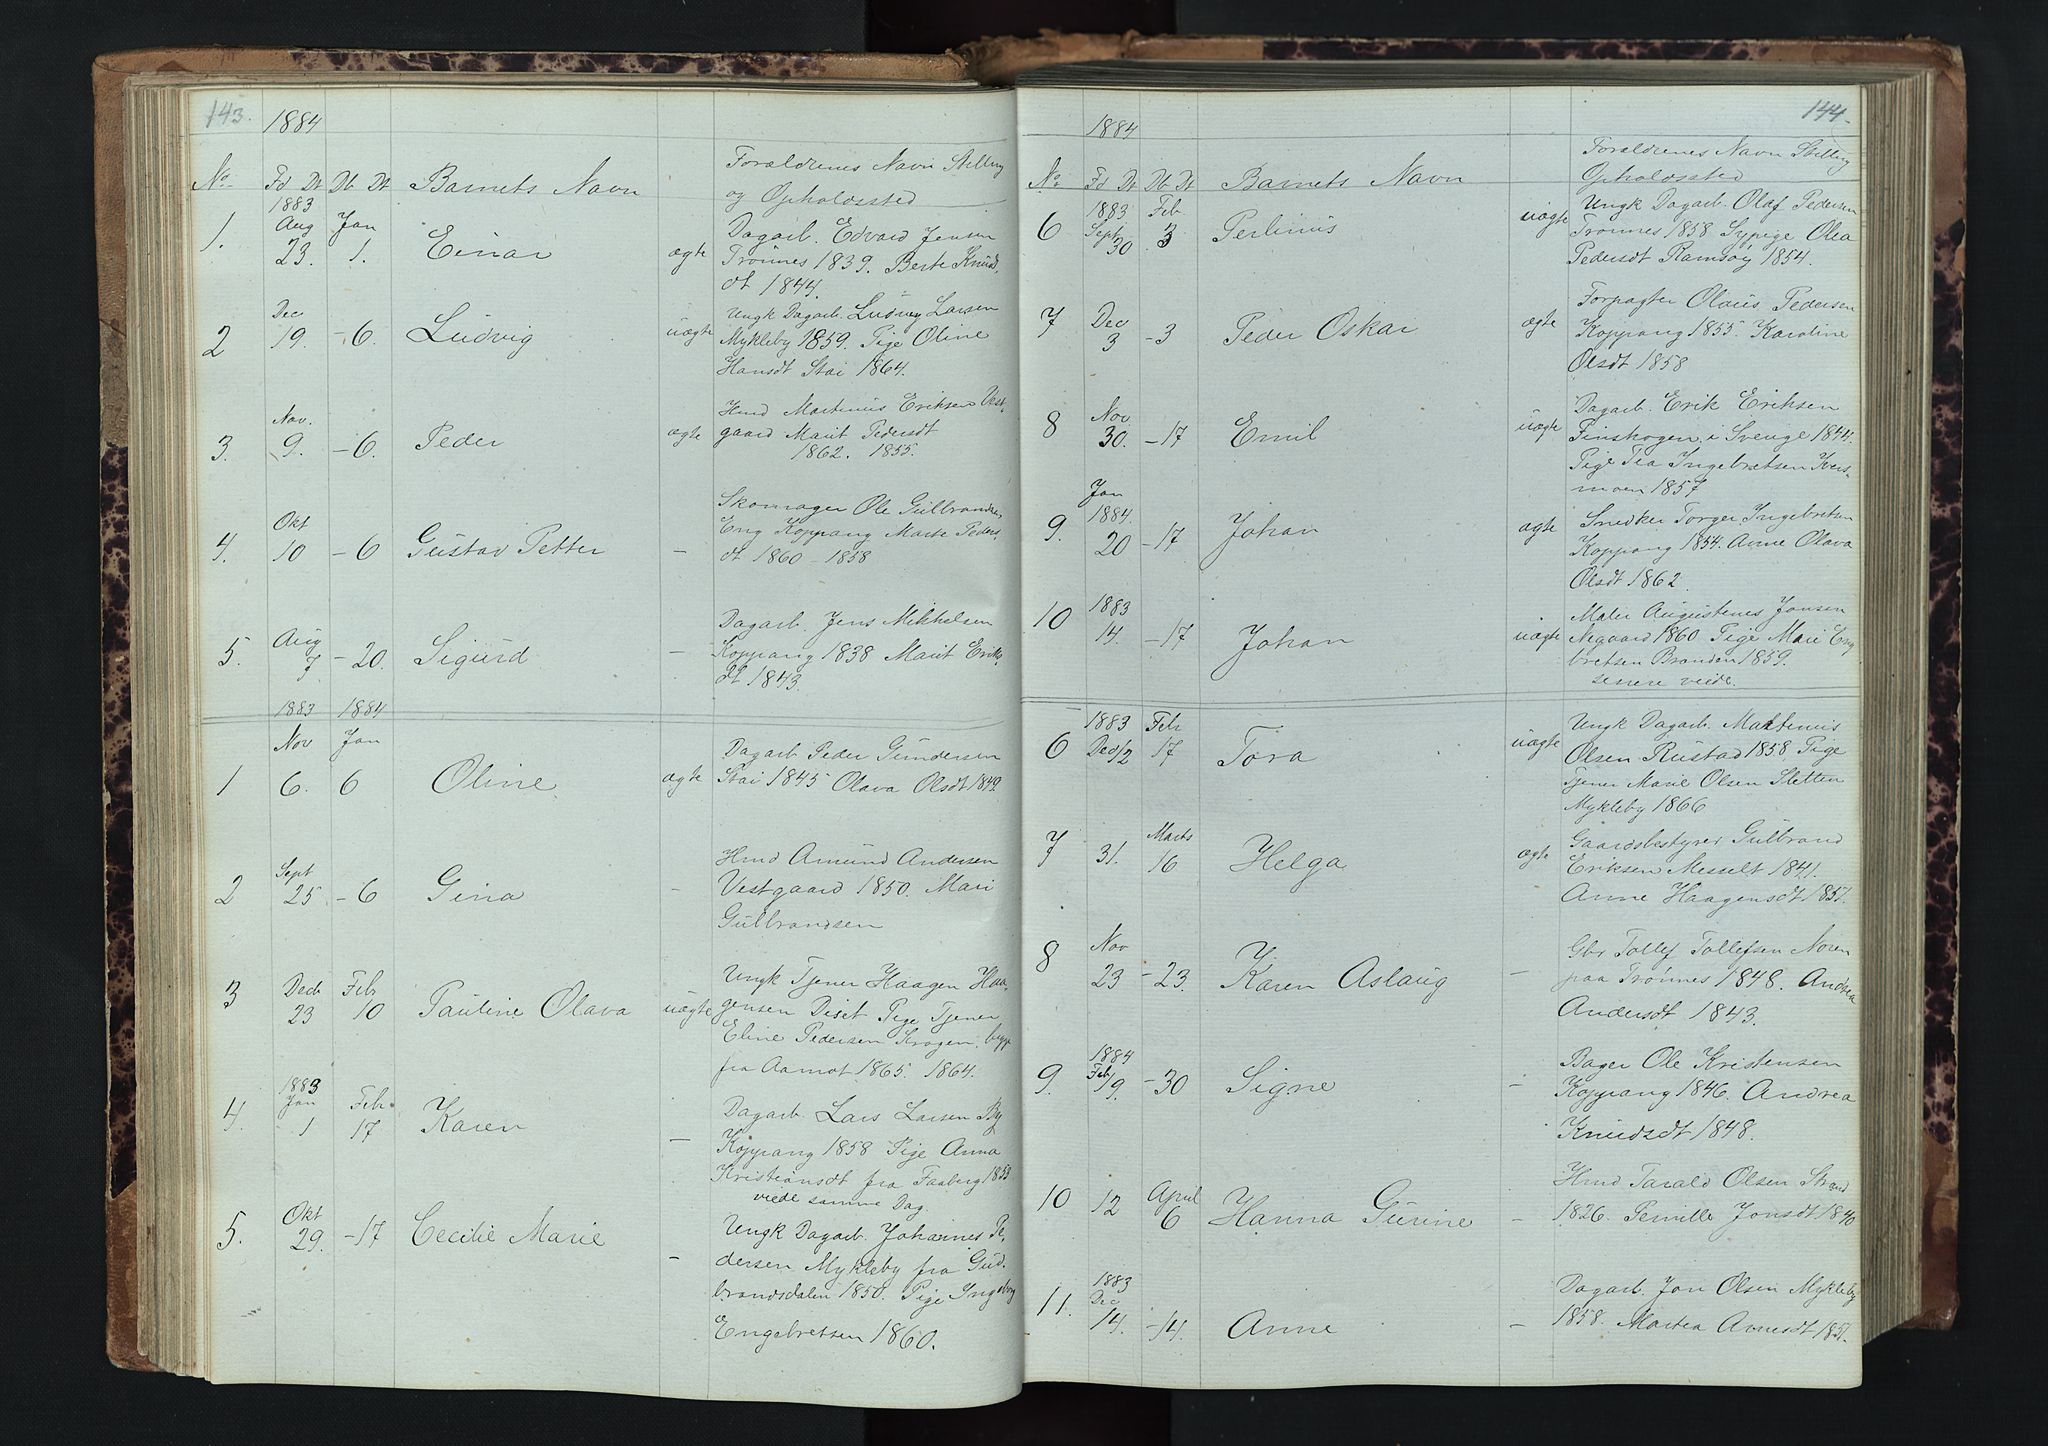 143.
1884
No Fd Dt Db Dt Barnets Navn Forældrenes Navn Stilling
og Opholdssted
1883
1. Aug 23. Jan 1. Einar ægte Dagarb. Edvard Jensen
Trønnes 1839. Berte Knuds
dt 1844.
2 Dec 19. - 6. Ludvig uægte Ungk Dagarb. Ludvig Larsen
Mykleby 1859. Pige Oline
Hansdt Stai 1864.
3. Nov. 9. - 6. Peder ægte Hmd Martinus Eriksen Vest-
gaard Marit Pedersdt
1862. 1855.
4. Okt 10 - 6 Gustav Petter - Skomager Ole Gulbrandsen
Eng Koppang Marte Peders
dt 1860 - 1858
5. Aug 7 - 20. Sigurd - Dagarb. Jens Mikkelsen
Koppang 1838 Marit Eriks
dt 1843.
1883 1884
1 Nov 6. Jan 6 Oline ægte Dagarb Peder Gundersen
Stai 1845 Olava Olsdt 1849
2 Sept 25 - 6 Gina - Hmd Amund Andersen
Vestgaard 1850. Mari
Gulbrandsen
3 Decb 23 Feb 10 Pauline Olava uægte Ungk Tjener Haagen Haa-
gensen Diset Pige Tjener
Eline Pedersen Krogen, begge
fra Aamot 1865. 1864.
1883
4. Jan 1 Feb. 17 Karen - Dagarb. Lars Larsen By
Koppang 1858 Pige Anna
Kristiansdt fra Faaberg 1853
viede samme Dag.
5. Okt 29. - 17 Cecilie Marie - Ungk Dagarb. Johannes Pe-
dersen Mykleby fra Gud-
brandsdalen 1850. Pige Ingeborg
Engebretsen 1860.
144.
1884
No. Fd Dt. Db Dt Barnets Navn Forældrenes Navn Stilling
Opholdssted
1883
6 Sept 30. Feb. 3 Perlinus uægte Ungk Dagarb. Olaf Pedersen
Trønnes 1858 Sypige Olea
Pedersdt Ramsøy 1854.
7 Dec 3 - 3 Peder Oskar ægte Forpagter Olaus Pedersen
Koppang 1855. Karoline
Olsdt 1858
8 Nov 30. - 17 Emil uægte Dagarb. Erik Eriksen
Finskogen i Sverige 1844.
Pige Tea Ingebretsen Kvers-
moen 1857
Jan
1884.
9. 20 - 17 Johan ægte Snedker Torger Ingebretsen
Koppang 1854. Anne Olava
Olsdt 1862.
1883
10 14. - 17 Johan uægte Maler Augustenes Jonsen
Negaard 1860. Pige Mari Eng
bretsen Branden 1859.
senere viede.
1883
6 Dec 12 Feb 17 Tora uægte Ungk Dagarb. Martinus
Olsen Rustad 1858 Pige
Tjener Marie Olsen Sletten
Mykleby 1866
7 31. Marts 16 Helga ægte Gaardsbestyrer Gulbrand
Eriksen Messelt 1841.
Anne Haagensdt 1857.
8 Nov 23 - 23. Karen Aslaug - Gbr Tollef Tollefsen Noren
paa Trønnes 1848. Andrea
Andersdt 1843.
1884
9. Feb 19. - 30 Signe - Bager Ole Kristensen
Koppang 1846. Andrea
Knudsdt 1848.
10 12 April 6 Hanna Gurine - Hmd Tarald Olsen Strand
1826. Pernille Jonsdt 1840
1883
11. Dec 14. - 14. Anne - Dagarb. Jon Olsen Mykleby
1858. Martea Arnesdt 1857.